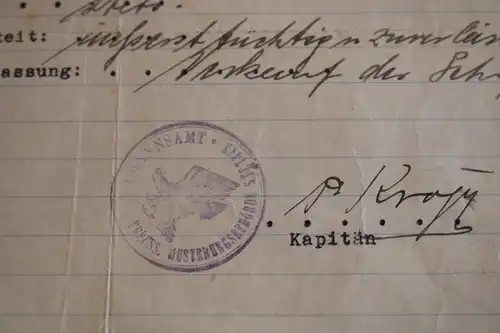 . . stets.
keit: äußerst tüchtig u. zuverläs
assung: . . Verkauf des Sch
MANNSAMT · PREUSS. MUSTERUNGSBEHÖRDE
P. Krogy
. . . . . .
Kapitän